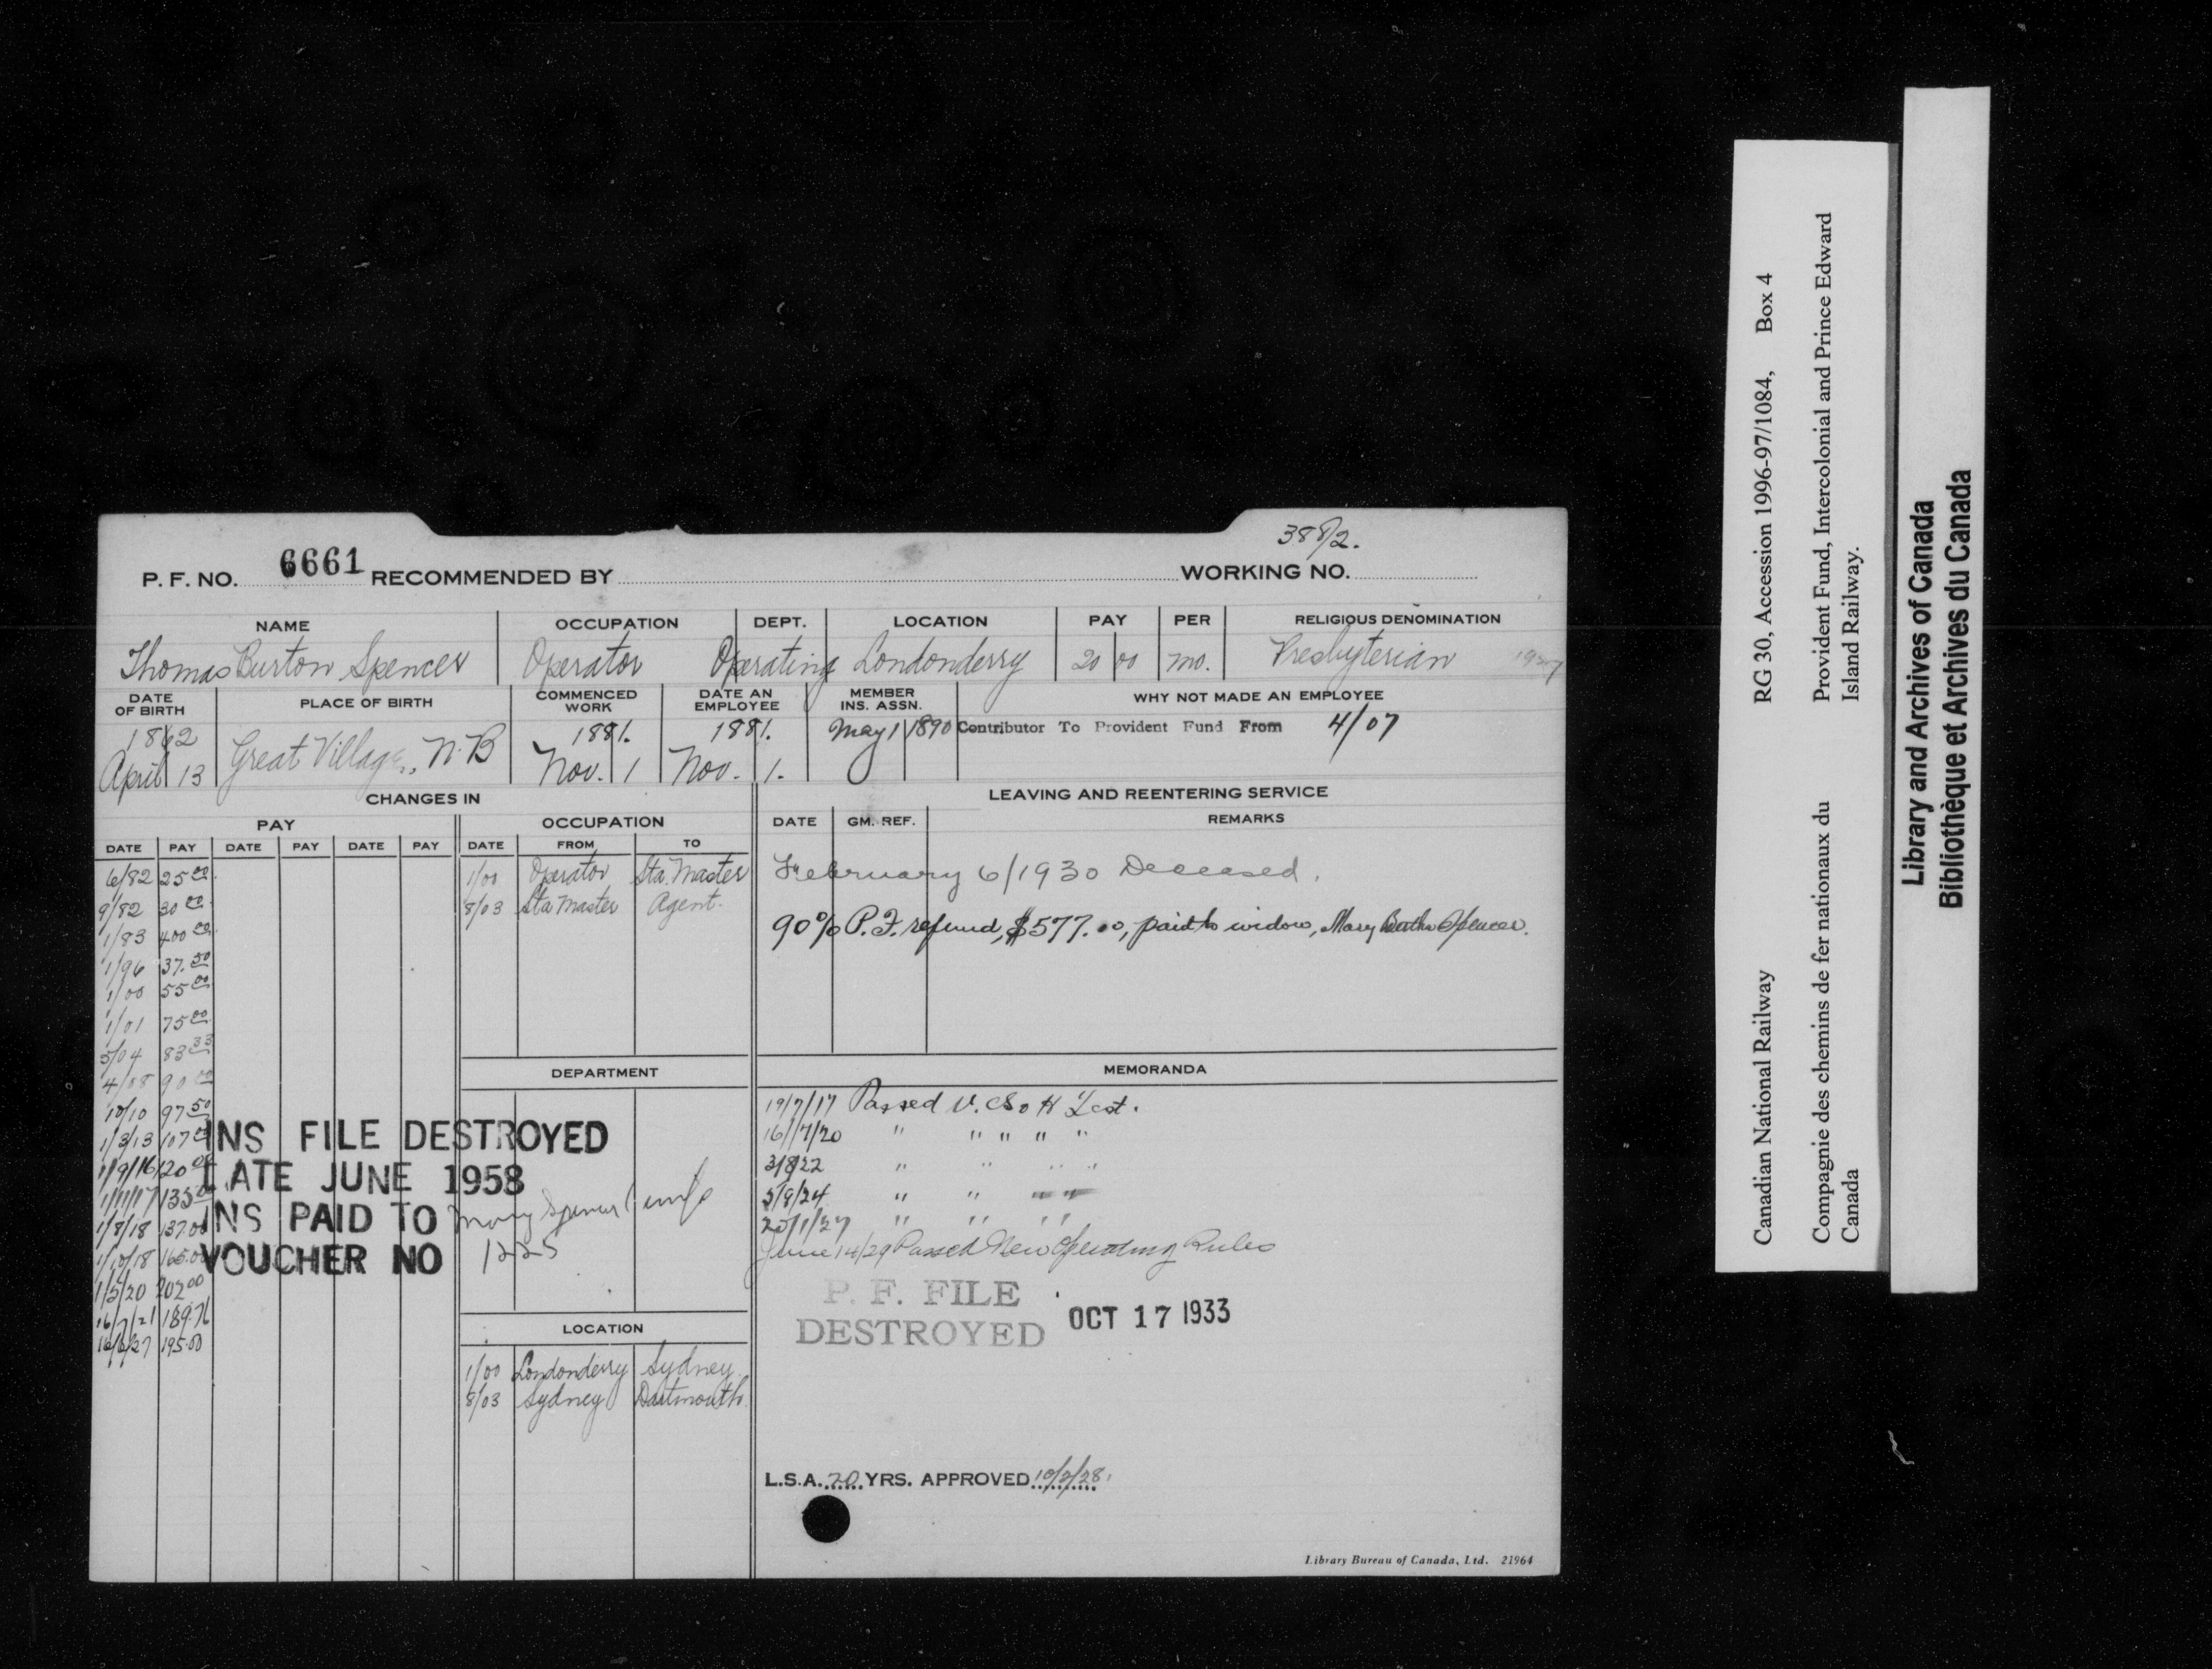 38 8/2.
P. F. NO. 6661 RECOMMENDED BY WORKING NO.
NAME OCCUPATION DEPT. LOCATION PAY PER RELIGIOUS DENOMINATION
Thomas Burton Spencer Operator Operating Londonderry 20 00 mo. Presbyterian
DATE OF BIRTH PLACE OF BIRTH COMMENCED WORK DATE AN EMPLOYEE MEMBER INS. ASSN. WHY NOT MADE AN EMPLOYEE
1862 1881. 1881. May 1 1890 Contributor To Provident Fund From 4/07
April 13 Great Village, N.B Nov. 1 Nov. 1.
CHANGES IN
PAY OCCUPATION
DATE PAY DATE PAY DATE PAY DATE FROM TO
6/82 25 00
9/82 30 00
1/83 400 00
1/96 37.50
1/00 55 00
1/01 75 00
5/04 83 33
4/08 90 00
10/10 97 50
1/3/13 107
1/9/16 120 00
1/11/17 135
1/8/18 137.00
1/10/18 165.00
1/5/20 202 00
16/7/21 189.76
16/6/27 195.00
1/00 Operator Sta. Master
8/03 Sta Master Agent.
DEPARTMENT
INS FILE DESTROYED
LATE JUNE 1958
INS PAID TO Mary Spencer (wife
VOUCHER NO 1225
LOCATION
1/00 Londonderry Sydney
8/03 Sydney Dartmouth.
LEAVING AND REENTERING SERVICE
DATE GM. REF. REMARKS
February 6/1930 Deceased.
90% P.F. refund, $577.00, paid to widow, Mary Bertha Spencer.
MEMORANDA
19/7/17 Passed V. CS. & H Test.
16/7/20 " " " " "
3/8/22 " " " "
5/8/24 " " " "
25/1/27 " " " "
June 14/29 Passed New Operating Rules
P. F. FILE
DESTROYED OCT 17 1933
L.S.A. 20 YRS. APPROVED 10/2/28.
Library Bureau of Canada, Ltd. 21964
Canadian National Railway RG 30, Accession 1996-97/1084, Box 4
Compagnie des chemins de fer nationaux du Provident Fund, Intercolonial and Prince Edward
Canada Island Railway.
Library and Archives of Canada
Bibliothèque et Archives du Canada